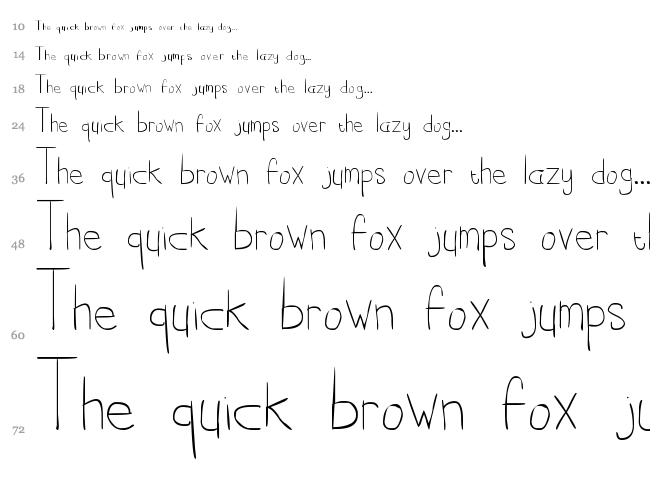 10 The quick brown fox jumps over the lazy dog...
14 The quick brown fox jumps over the lazy dog...
18 The quick brown fox jumps over the lazy dog...
24 The quick brown fox jumps over the lazy dog...
36 The quick brown fox jumps over the lazy dog...
48 The quick brown fox jumps over t
60 The quick brown fox jumps
72 The quick brown fox ju